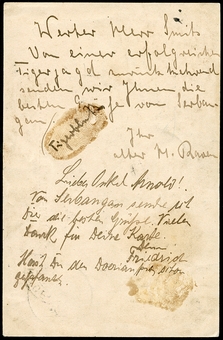 Werter Herr Smits
Von einer erfolgreichen
Tigerjagd zurückkehrend
senden wir Ihnen die
besten Grüße von Serban-
gan
Ihr
alter M.
Tigerblut
Lieber Onkel Arnold!
Von Serbangan sende ich
Dir die frohen Grüße. Vielen
Dank für Deine Karte.
Dein
Friedrich
Hast Du den schon
gepflanzt